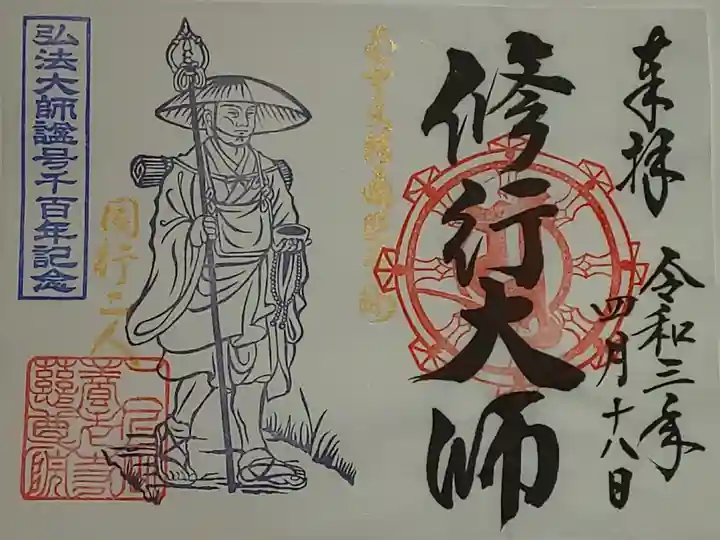 奉拝
令和三年
四月十八日
修行大師
弘法大師諡号千百年記念
同行二人
慈尊院